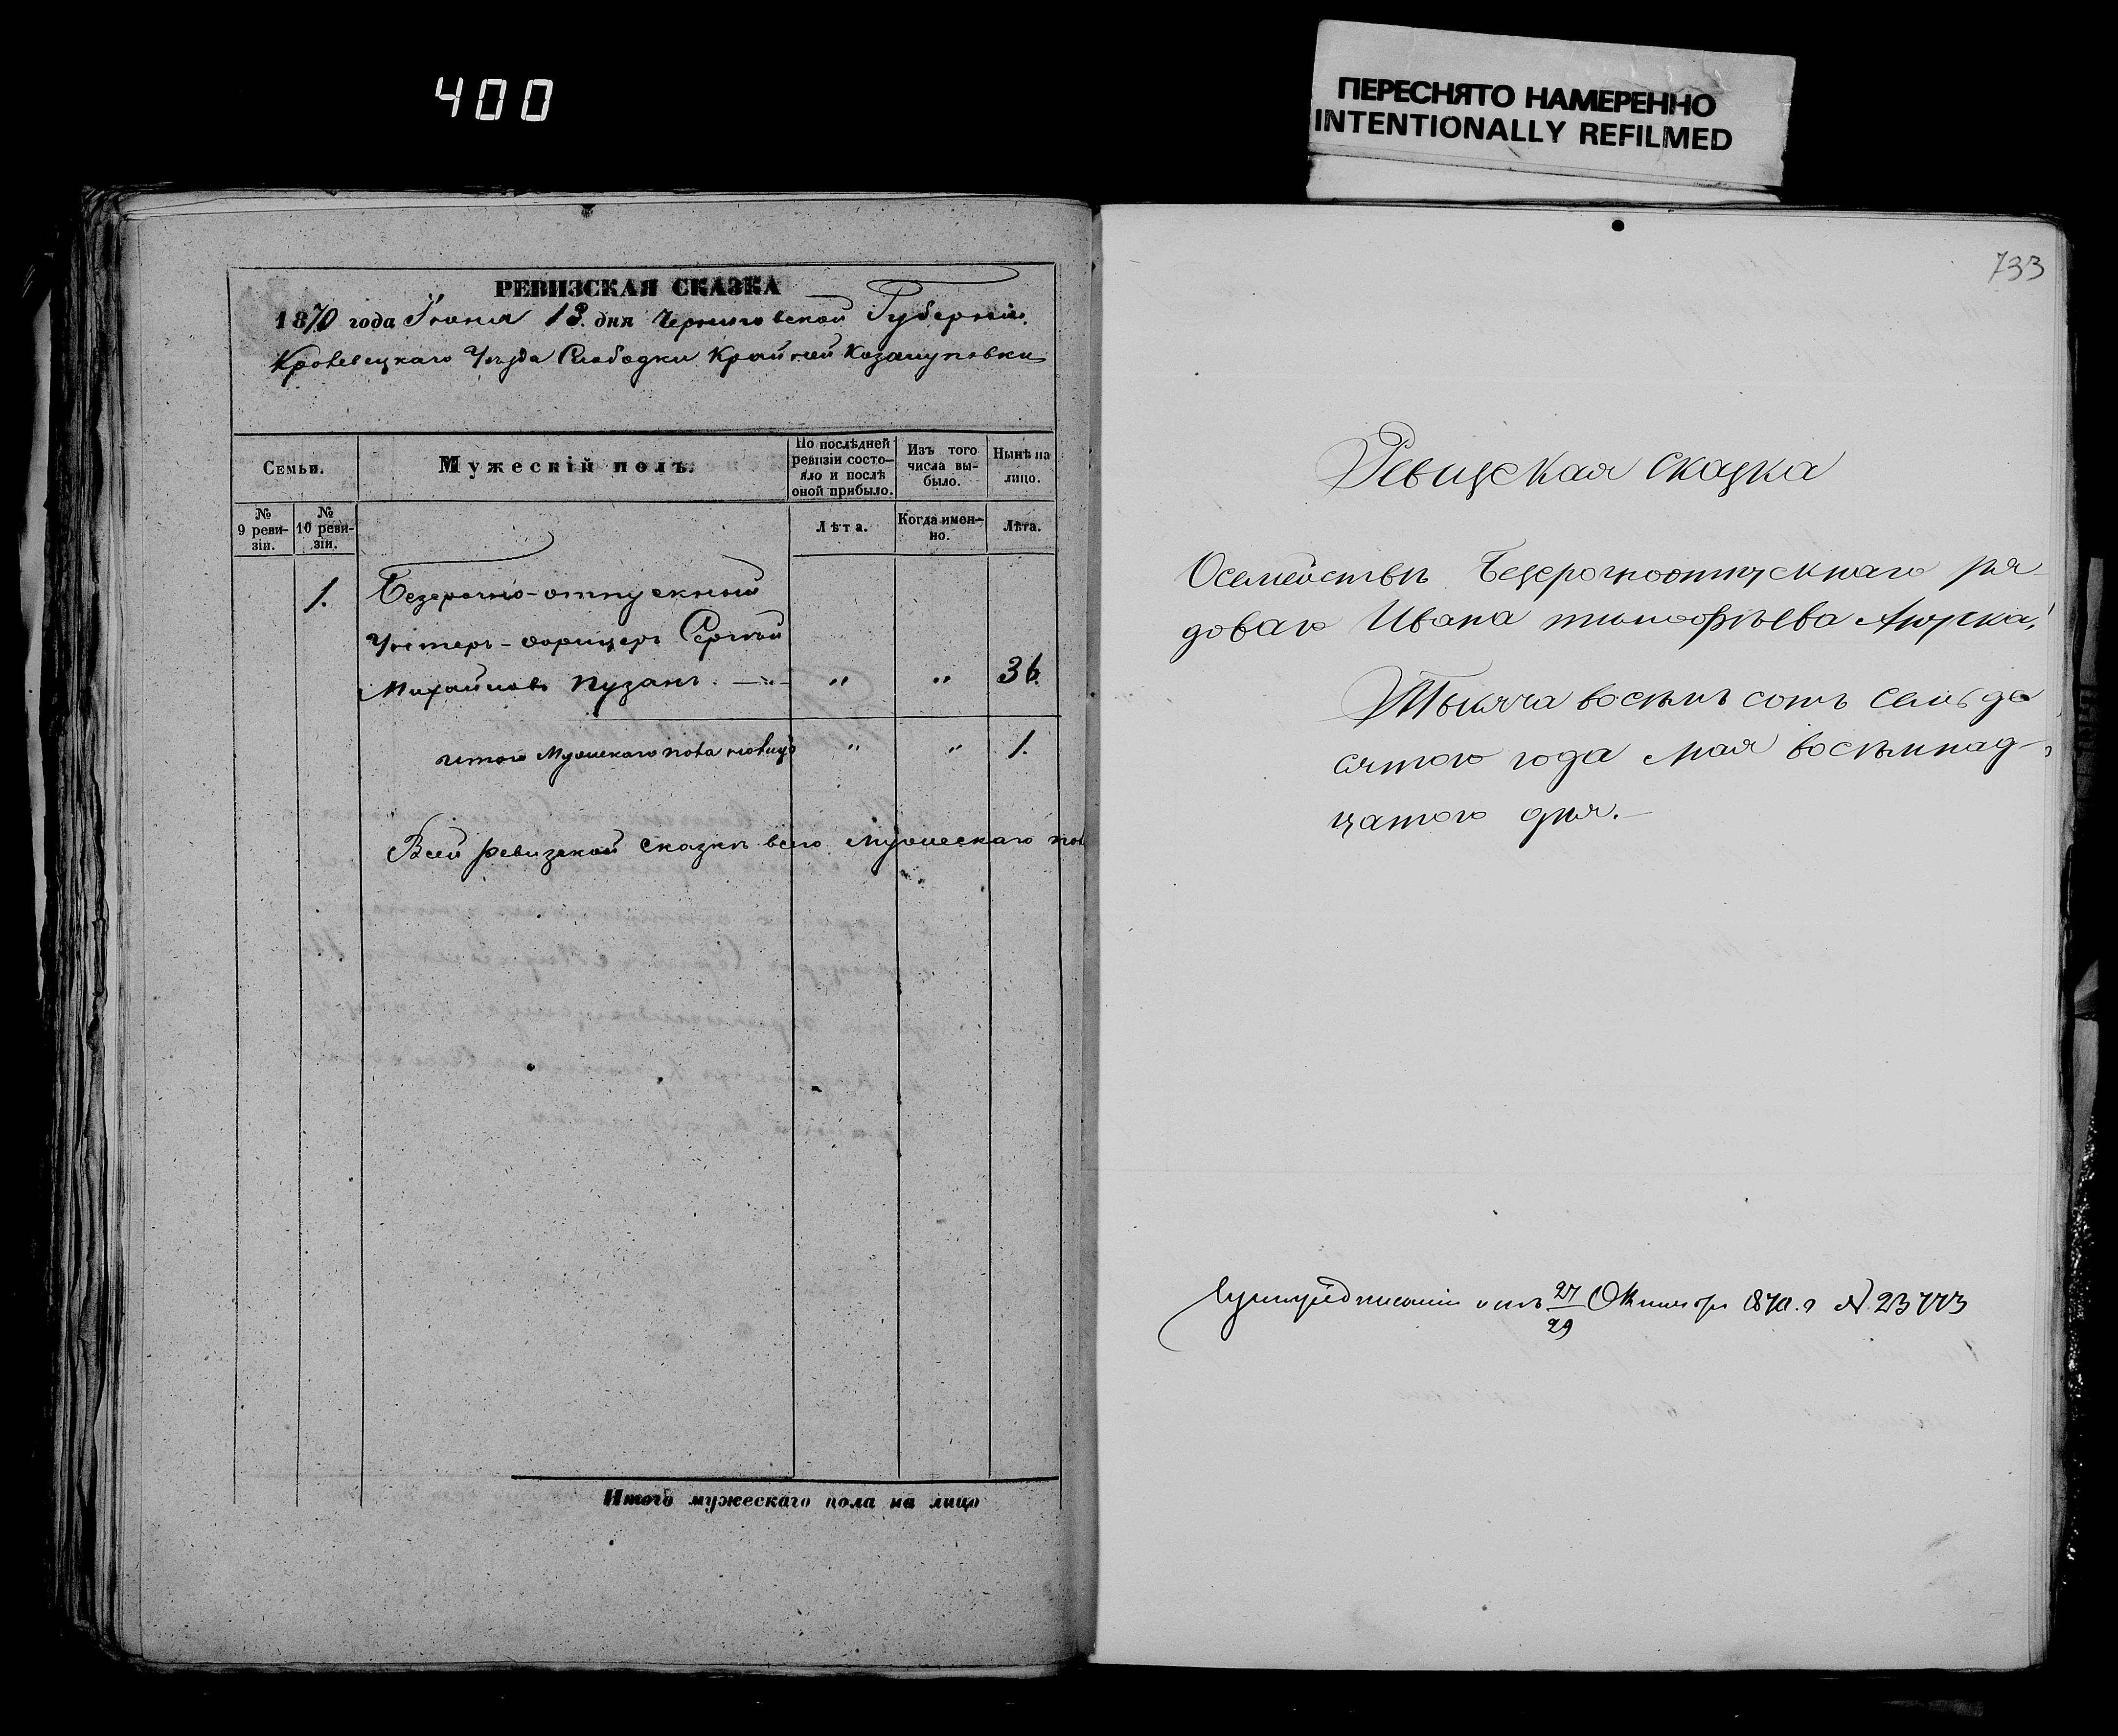 400
ПЕРЕСНЯТО НАМЕРЕННО
INTENTIONALLY REFILMED
РЕВИЗСКАЯ СКАЗКА
1870 года Іюня 13. дня Черниговской Губерніи.
Кролевецкаго Уѣзда Слободки Крайней
Семьи.
Мужескій полъ.
По послѣдней ревизіи состо-
яло и послѣ
оной прибыло.
Изъ того
числа вы-
было.
Нынѣ на
лицо.
№
9 реви-
зіи.
№
10 реви-
зіи.
Лѣта.
Когда имен-
но.
Лѣта.
1.
Безсрочно-отпускный
Унтеръ-офицеръ Сергѣй
Михайловъ Пузанъ. " " 36.
итого Мужескаго пола налицо " " 1.
Всей ревизской сказкѣ всего Мужескаго пол
Итого мужескаго пола на лицо
733
Ревизская сказка
О семействѣ Безсрочноотпускнаго ря-
доваго Ивана тимофѣева
Тысяча восемь сотъ семьде
сятого года мая восемнад-
цатого дня.
27
29 Октября 1870. г №. 23773